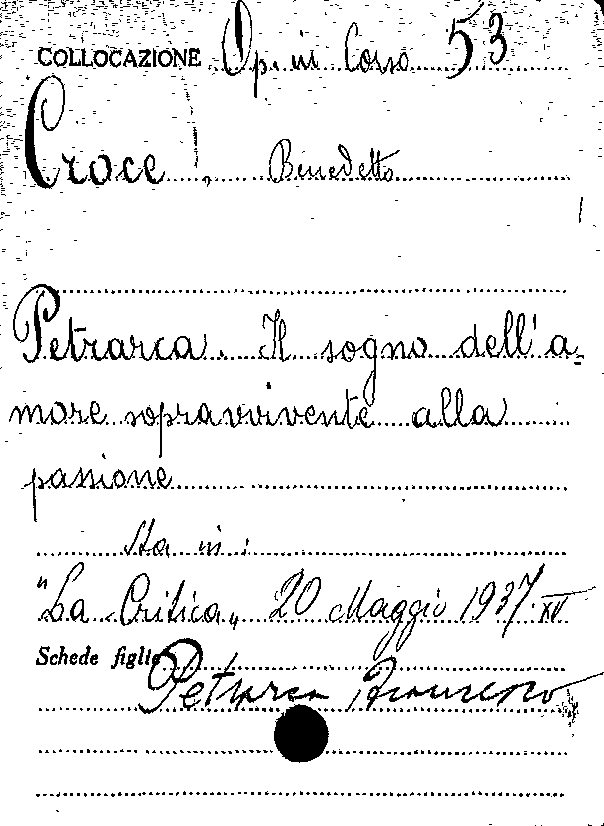 COLLOCAZIONE Op. in Corso 53
Croce, Benedetto
Petrarca. Il sogno dell'a-
more sopravvivente alla
passione
Sta in:
"La Critica" 20 Maggio 1937. XV
Schede figlie
Petrarca Francesco